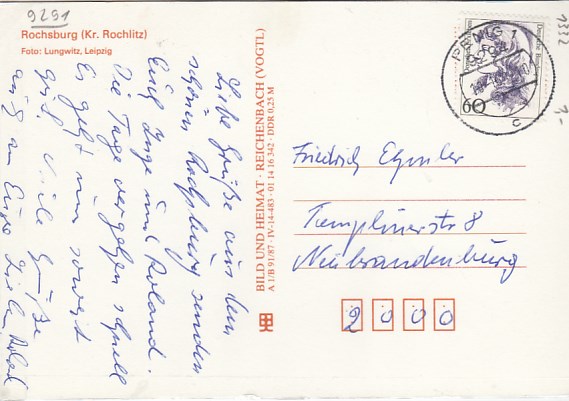 9291
Rochsburg (Kr. Rochlitz)
Foto: Lungwitz, Leipzig
Liebe Grüße aus dem
schönen Rochsburg senden
Euch Inge und Roland.
Die Tage vergehen schnell
Es geht uns soweit
gut. Viele Grüße
auch an Eure
BILD UND HEIMAT · REICHENBACH (VOGTL)
A 1/B 91/87 · IV-14-483 · 01 14 16 342 · DDR 0,25 M
PENIG 1
60
c
1332
1,-
Friedrich
Templinerstr 8
Neubrandenburg
2000